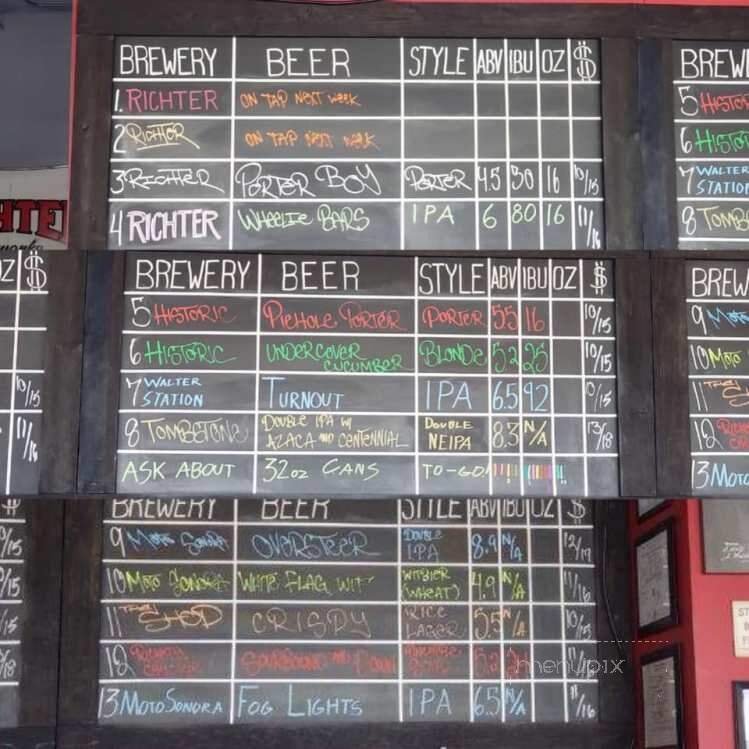 BREWERY BEER STYLE ABV IBU OZ $
1. RICHTER ON TAP NEXT WEEK
2 RICHTER ON TAP NEXT WEEK
3 RICHTER PORTER BOY PORTER 4.5 30 16 10/15
4 RICHTER WHEELIE BARS IPA 6 80 16 11/16
BREW
5 HISTOR
6 HISTOR
7 WALTER
STATION
8 TOMB
OZ $
10/15
11/16
BREWERY BEER STYLE ABV IBU OZ $
5 HISTORIC PIEHOLE PORTER PORTER 5.5 16 10/15
6 HISTORIC UNDERCOVER CUCUMBER BLONDE 5.2 25 10/15
7 WALTER STATION TURNOUT IPA 6.5 92 10/15
8 TOMBSTONE DOUBLE IPA W/ AZACA AND CENTENNIAL DOUBLE NEIPA 8.3 N/A 13/18
ASK ABOUT 32oz CANS TO-GO!
BREW
9 MOTO
10 MOTO
11
12
13 MOTO
BREWERY BEER STYLE ABV IBU OZ $
9 MOTO SONORA OVERSTEER DOUBLE IPA 8.9 N/A 12/17
10 MOTO SONORA WHITE FLAG WIT WITBIER (WHEAT) 4.9 N/A 11/16
11 THE SHOP CRISPY RICE LAGER 5.5 N/A 10/15
12 5.2
13 MOTOSONORA FOG LIGHTS IPA 6.5 N/A 11/16
menupix